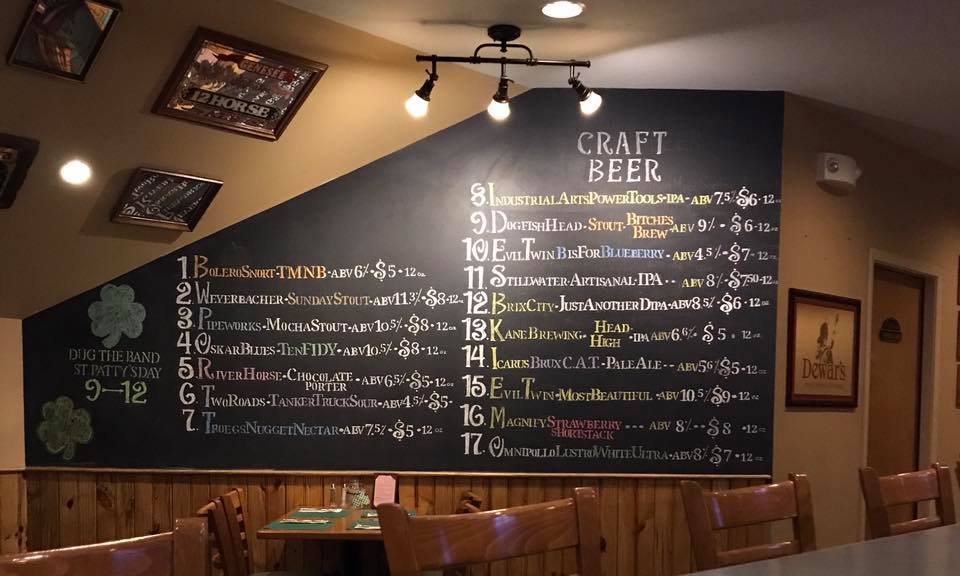 GENESEE
12 HORSE
CRAFT
BEER
1. BOLERO SNORT - TMNB - ABV 6% - $5 - 12oz
2. WEYERBACHER - SUNDAY STOUT - ABV 11.3% - $8 - 12oz
3. PIPEWORKS - MOCHA STOUT - ABV 10.5% - $8 - 12oz
4. OSKAR BLUES - TEN FIDY - ABV 10.5% - $8 - 12oz
5. RIVER HORSE - CHOCOLATE PORTER - ABV 6.5% - $5 - 12oz
6. TWO ROADS - TANKER TRUCK SOUR - ABV 4.5% - $5 -
7. TROEGS NUGGET NECTAR - ABV 7.5% - $5 - 12oz
8. INDUSTRIAL ARTS POWER TOOLS - IPA - ABV 7.5% $6 - 12oz
9. DOGFISH HEAD - STOUT - BITCHES BREW - ABV 9% - $6 - 12oz
10. EVIL TWIN BIS FOR BLUEBERRY - ABV 4.5% - $7 - 12oz
11. STILLWATER - ARTISANAL - IPA - - ABV 8% - $7.50 - 12oz
12. BRIX CITY - JUST ANOTHER DIPA - ABV 8.5% - $6 - 12oz
13. KANE BREWING - HEAD HIGH - IPA ABV 6.6% - $5 - 12oz
14. ICARUS BRUX C.A.T. - PALE ALE - - ABV 5.6% $5 - 12oz
15. EVIL TWIN - MOST BEAUTIFUL - ABV 10.5% $9 - 12oz
16. MAGNIFY STRAWBERRY SHORTSTACK - - - ABV 8% - $8 - 12oz
17. OMNIPOLLO LUSTRO WHITE ULTRA - ABV 8% $7 - 12oz
DUG THE BAND
ST PATTY'S DAY
9-12
Dewar's